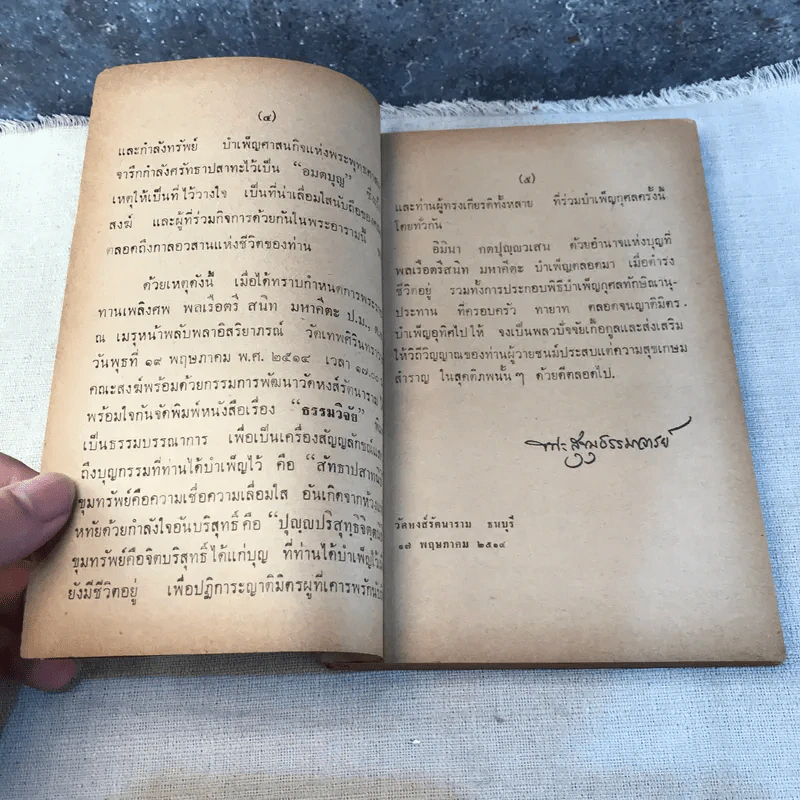 (๔)
และกำลังทรัพย์ บำเพ็ญศาสนกิจแห่งพระพุทธศาสน
จารึกกำลังศรัทธาปสาทะไว้เป็น “อมตบุญ”
เหตุให้เป็นที่ไว้วางใจ เป็นที่น่าเลื่อมใสนับถือของ
สงฆ์ และผู้ที่ร่วมกิจการด้วยกันในพระอารามนี้
ตลอดถึงกาลอวสานแห่งชีวิตของท่าน
ด้วยเหตุดังนี้ เมื่อได้ทราบกำหนดการพระราช
ทานเพลิงศพ พลเรือตรี สนิท มหาคีตะ ป.ม.,
ณ เมรุหน้าพลับพลาอิสริยาภรณ์ วัดเทพศิรินทรา
วันพุธที่ ๑๙ พฤษภาคม พ.ศ. ๒๕๑๔ เวลา ๑๗.๐๐
คณะสงฆ์พร้อมด้วยกรรมการพัฒนาวัดหงส์รัตนาราม
พร้อมใจกันจัดพิมพ์หนังสือเรื่อง “ธรรมวิจัย”
เป็นธรรมบรรณาการ เพื่อเป็นเครื่องสัญญลักขณ์
ถึงบุญกรรมที่ท่านได้บำเพ็ญไว้ คือ “สัทธาปสาท
ขุมทรัพย์คือความเชื่อความเลื่อมใส อันเกิดจากห้วง
หทัยด้วยกำลังใจอันบริสุทธิ์ คือ “ปุญฺญปริสุทฺธิจิตฺต
ขุมทรัพย์คือจิตบริสุทธิ์ ได้แก่บุญ ที่ท่านได้บำเพ็ญไว้
ยังมีชีวิตอยู่ เพื่อปฏิการะญาติมิตรผู้ที่เคารพรักนับ
(๕)
และท่านผู้ทรงเกียรติทั้งหลาย ที่ร่วมบำเพ็ญกุศลครั้งนี้
โดยทั่วกัน
อิมินา กตปุญฺญวเสน ด้วยอำนาจแห่งบุญที่
พลเรือตรีสนิท มหาคีตะ บำเพ็ญตลอดมา เมื่อดำรง
ชีวิตอยู่ รวมทั้งการประกอบพิธีบำเพ็ญกุศลทักษิณานุ-
ประทาน ที่ครอบครัว ทายาท ตลอดจนญาติมิตร
บำเพ็ญอุทิศไปให้ จงเป็นพลวปัจจัยเกื้อกูลและส่งเสริม
ให้วิถีวิญญาณของท่านผู้วายชนม์ประสบแต่ความสุขเกษม
สำราญ ในสุคติภพนั้น ๆ ด้วยดีตลอดไป.
พระสุขุมธรรมาจารย์
วัดหงส์รัตนาราม ธนบุรี
๑๗ พฤษภาคม ๒๕๑๔